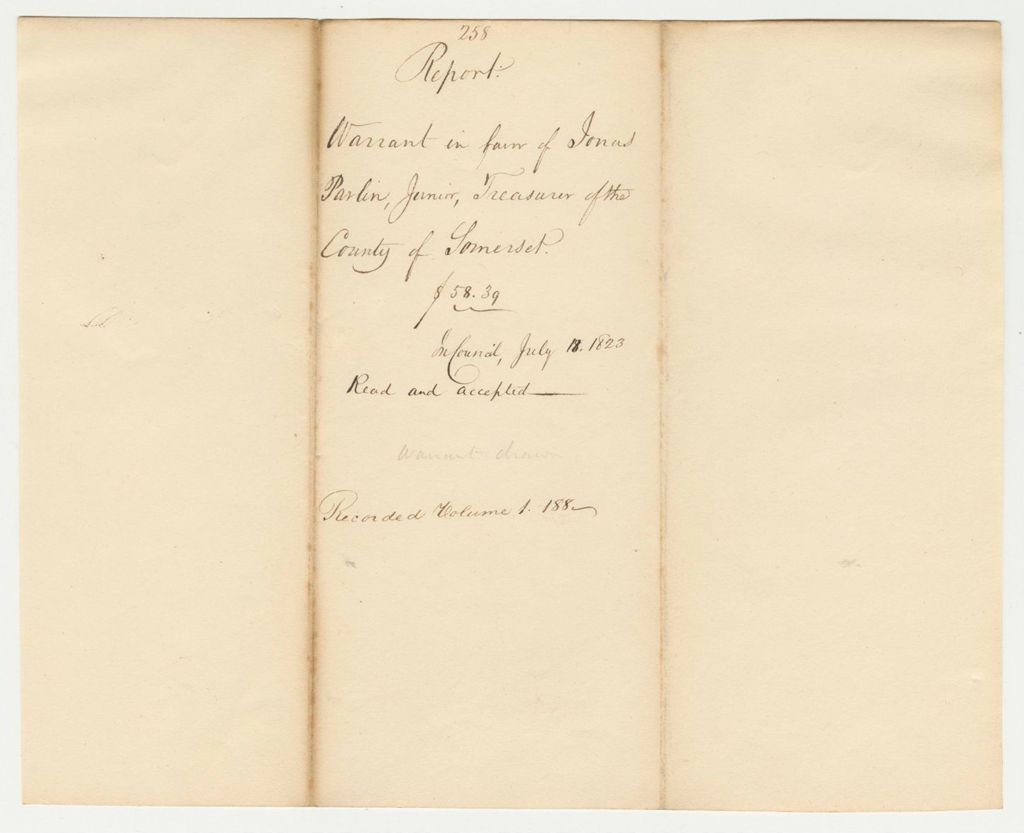 258
Report.
Warrant in favor of Jonas
Parlin, Junior, Treasurer of the
County of Somerset.
$58.39
In Council, July 18. 1823
Read and accepted
Warrant drawn
Recorded Volume 1. 188